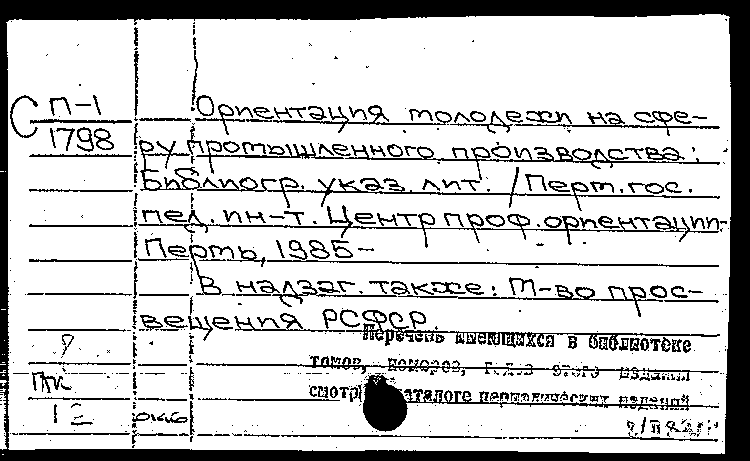 С П-1 Ориентация молодежи на сфе-
1798 ру промышленного производства:
Библиогр. указ. лит. / Перм. гос.
пед. ин-т. Центр проф. ориентации.-
Пермь, 1985-
В надзаг. также: М-во прос-
вещения РСФСР.
Перечень имеющихся в библиотеке
томов, номеров, г.г. этого издания
смотри каталоге периодических изданий
12